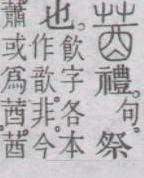 莤禮。句。祭
也。飲字各本
作歆非。今
蕭或為莤莤